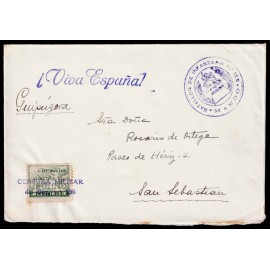 ¡Viva España!
BATALLON DE INFANTERIA
Guipúzcoa
Sra Doña
Rosario de Ortega
Paseo de Hériz-4.
San Sebastian
CENSURA MILITAR